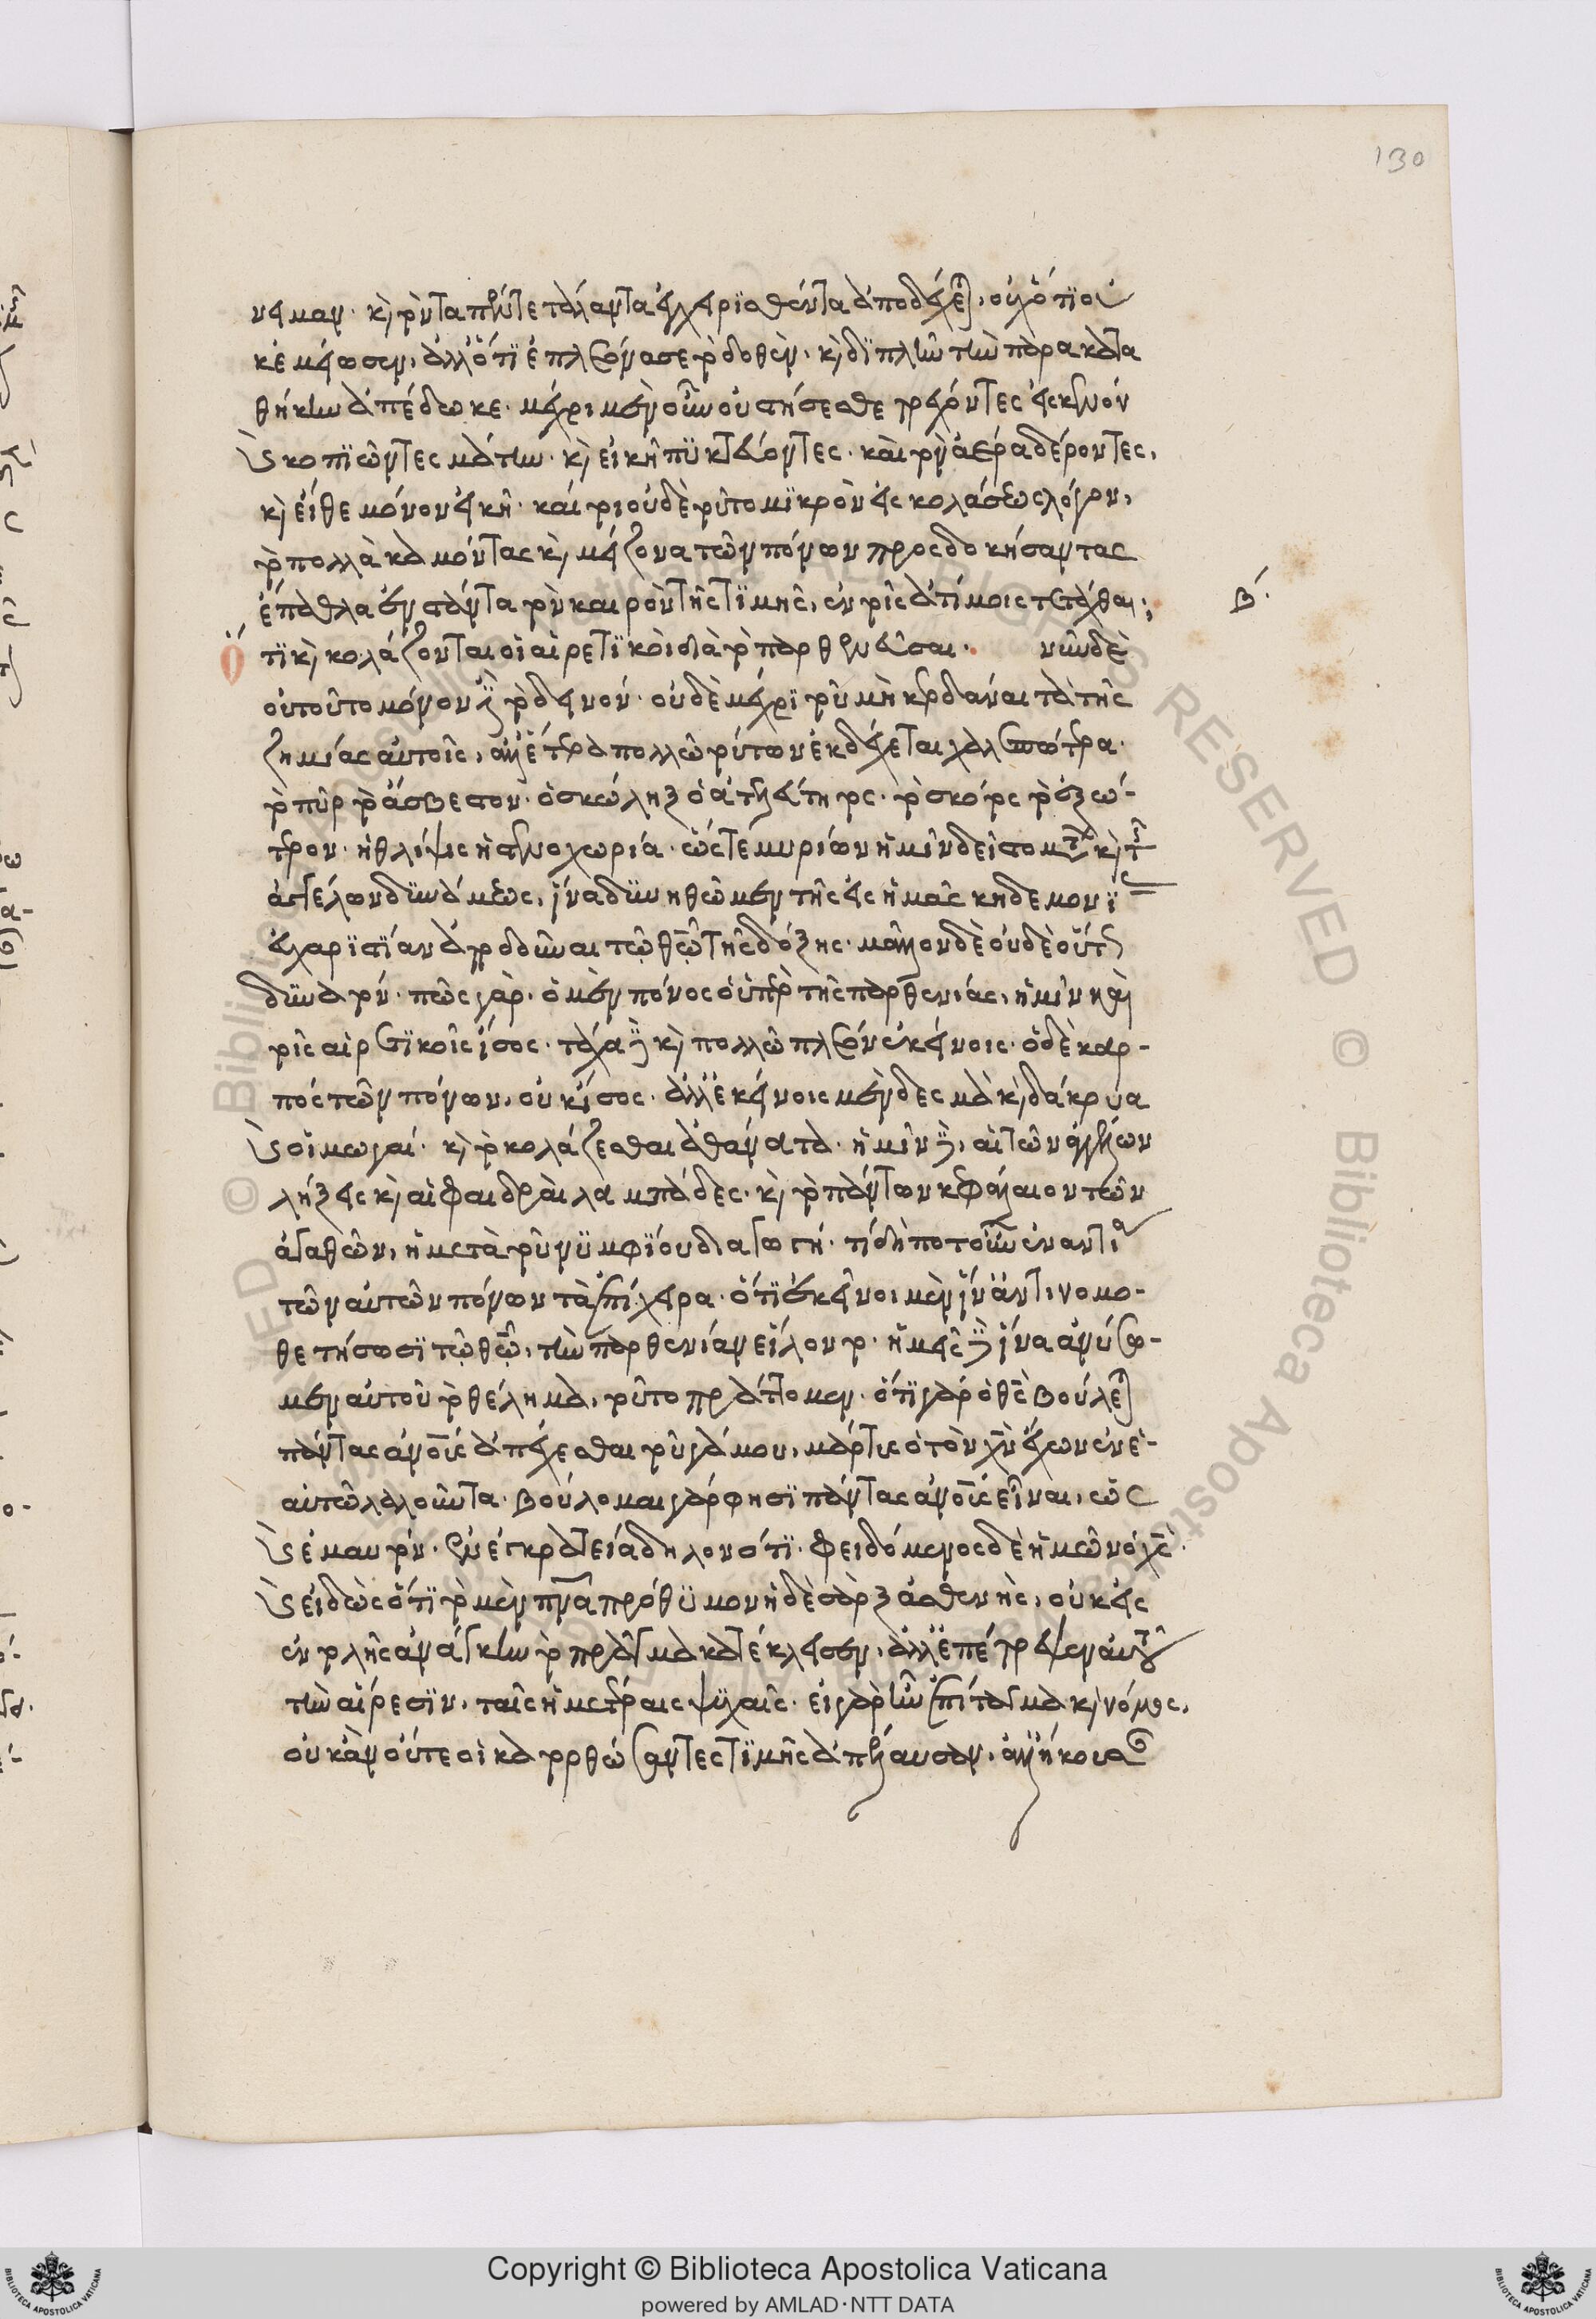 νειμαν· καὶ τὸν τὰ πέντε τάλαντα ἐγχειρϊσθέντα ἀποδέχεται, οὐχ ὅτϊ οὐ
κ ἐμείωσεν, ἀλλ' ὅτϊ ἐπλεόνασε τὸ δοθὲν, καὶ δϊπλὴν τὴν παρακατα
θήκην ἀπέδωκε· μέχρι μὲν οὖν οὐ στήσεσθε τρέχοντες εἰς κενὸν
καὶ κοπϊῶντες μάτην· καὶ εἰκῆ πϋκτεύοντες· καὶ τὸν ἀέρα δέροντες,
καὶ εἴθε μόνον εἰκῆ· καίτοι οὐδὲ τοῦτο μϊκρὸν εἰς κολάσεως λόγον,
τὸ πολλὰ καμόντας καὶ μείζονα τῶν πόνων προσδοκήσαντας
ἔπαθλα ἐνστάντα τὸν καιρὸν τῆς τϊμῆς, ἐν τοῖς ἀτίμοις τετάχθαι; β´
Ὅτϊ καὶ κολάζονται οἱ αἱρετϊκοὶ διὰ τὸ παρθενεῦσαι· νῦν δὲ
οὐ τοῦτο μόνον ἐστὶ τὸ δεινόν· οὐδὲ μέχρϊ τοῦ μὴ κερδᾶναι τὰ τῆς
ζημίας αὐτοῖς, ἀλλ' ἕτερα πολλῶ τούτων ἐκδέχεται χαλεπώτερα·
τὸ πῦρ τὸ ἄσβεστον· ὁ σκώληξ ὁ ἀτελεύτητος· τὸ σκότος τὸ ἐξώ-
τερον· ἡ θλίψις ἡ στενοχωρία· ὥστε μυρίων ἡμῖν δεῖ στομάτων καὶ τῆς
ἀγγέλων δϋνάμεως, ἵνα δϋνηθῶμεν τῆς εἰς ἡμᾶς κηδεμονϊας
εὐχαρϊστϊαν ἀποδοῦναι τῷ θῶ τῆς δόξης· μᾶλλον δὲ οὐδὲ οὕτω
δϋνατόν· πῶς γὰρ· ὁ μὲν πόνος ὁ ὑπὲρ τῆς παρθενίας, ἡμῖν καὶ
τοῖς αἱρετϊκοῖς ἴσος· τάχα δὲ καὶ πολλῶ πλεῖον ἐκείνοις· ὁ δὲ καρ-
πὸς τῶν πόνων, οὐκ ἴσος· ἀλλ' ἐκείνοις μὲν δεσμὰ καὶ δάκρυα
καὶ οἰμωγαί· καὶ τὸ κολάζεσθαι ἀθάνατα· ἡμῖν δὲ, αἱ τῶν ἀγγέλων
λήξεις καὶ αἱ φαιδραὶ λαμπάδες· καὶ τὸ πάντων κεφάλαιον τῶν
ἀγαθῶν, ἡ μετὰ τοῦ νϋμφϊου διαγωγή· τί δήποτ' οὖν ἐναντία
τῶν αὐτῶν πόνων τὰ ἐπίχειρα· ὅτϊ ἐκεῖνοι μὲν ἵν' ἀντινομο-
θετήσωσϊ τῶ θῶ, τὴν παρθενίαν εἵλοντο· ἡμεῖς δὲ ἵνα ἀνύσω-
μεν αὐτοῦ τὸ θέλημα, τοῦτο πράττομεν· ὅτϊ γὰρ ὁ θς βούλεται
πάντας ἀνους ἀπέχεσθαι τοῦ γάμου, μάρτυς ὁ τὸν χν ἔχων ἐν ἑ-
αυτῶ λαλοῦντα· βούλομαι γάρ φησϊ πάντας ἀνους εἶναι, ὡς
καὶ ἐμαυτόν· ἐν ἐγκρατεία δηλονότϊ· φειδόμενος δὲ ἡμῶν ὁ χς·
καὶ εἰδὼς ὅτϊ τὸ μὲν πνα πρόθϋμον ἡ δὲ σὰρξ ἀσθενὴς, οὐκ εἰς
ἐντολῆς ἀνάγκην τὸ πρᾶγμα κατέκλεισεν, ἀλλ' ἐπέτρεψεν αὐτοῦ
τὴν αἵρεσϊν, ταῖς ἡμετέραις ψϋχαῖς· εἰ γὰρ ἦν ἐπίταγμα καὶ νόμος,
οὐκ ἂν οὔτε οἱ κατορθώσαντες τϊμῆς ἀπέλαυσαν, ἀλλ' ἤκουσ